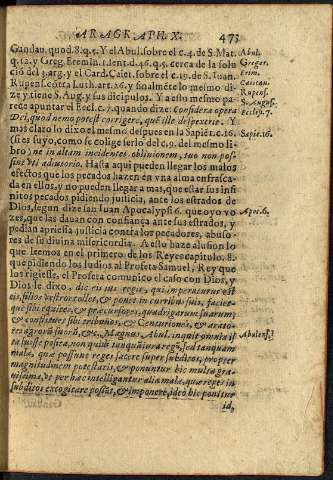 ARAGRAPH. X. 473
Gandau. quod. 8. q. 5. Y el Abul. sobre el c. 4. de S. Mat. Abul.
q. 12. y Greg. Eremin. t. sent. d. 46. q. 5. cerca de la solu Gregor.
ció del 3. arg. y el Card. Caiet. sobre el c. 15. de S. Iuan. Erim.
Caietan.
Rupens. cótra Luth. art. 36. y finalmēte lo mesmo di- Rupens.
ze y tiene S. Aug. y sus dicipulos. Y a esto mesmo pa- S. Augus.
rece apuntar el Eccl. c. 7. quando dize: Considera opera Eccles. 7.
Dei, quod nemo potest corrigere, què ille despexerit. Y
mas claro lo dixo el mesmo despues en la Sapiēt. c. 16. Sapie. 16.
si es suyo, como se colige serlo del c. 9. del mesmo li-
bro: ne in altam incidentes obliuionem, tuo non pos-
sint vti adiutorio. Hasta aqui pueden llegar los malos
efectos que los pecados hazen en vna alma enfrasca-
da en ellos, y no pueden llegar a mas, que estar sus infi
nitos pecados pidiendo justicia, ante los estrados de
Dios, segun dize san Iuan Apocalypsi 6. que oyo vo Apoc. 6.
zes, que las dauan con confiança ante sus estrados, y
pedian apriessa justicia contra los pecadores, abuso-
res de su diuina misericordia. A esto haze alusion lo
que leemos en el primero de los Reyes capitulo. 8.
que pidiendo los Iudios al Profeta Samuel, Rey que
los rigiesse, el Profeta comunico el caso con Dios, y
Dios le dixo, dic eis ius regis, qui imperaturus est
eis, filios vestros tollet, & ponet in curribus suis, faciet-
que sibi equites, & præcursores, quadrigarum suarum;
& constituet sibi tribunos, & Centuriones, & arato-
res agrorū suorū, &c. Magnus Abul. inquit omnia is Abulens.
ta fuisse postea, non quia tanquā iura regū, sed tanquam
mala, quæ possunt reges facere super subditos, propter
magnitudinem potestatis, & ponuntur hic multa gra-
uissima, vt per hæc intelligantur alia mala, quæ reges in
subditos excogitare possūt, & imponere, ideò hic ponitur
id,